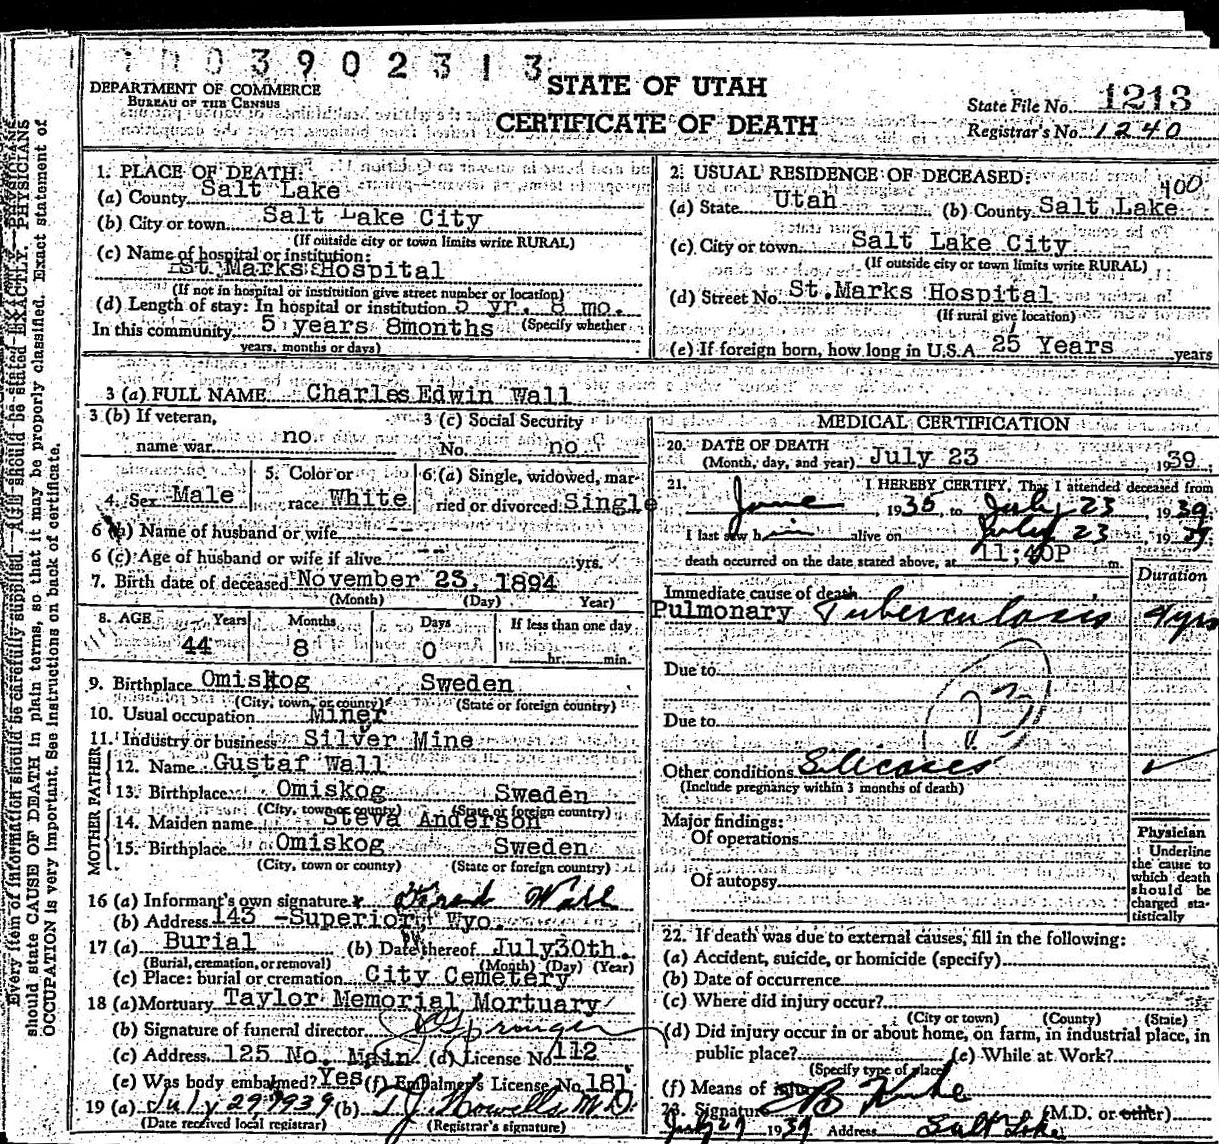 3902313
DEPARTMENT OF COMMERCE
BUREAU OF THE CENSUS
STATE OF UTAH
CERTIFICATE OF DEATH
State File No. 1213
Registrar's No. 1240
Every item of information should be carefully supplied. AGE should be stated EXACTLY. PHYSICIANS
should state CAUSE OF DEATH in plain terms, so that it may be properly classified. Exact statement of
OCCUPATION is very important. See instructions on back of certificate.
1. PLACE OF DEATH:
(a) County Salt Lake
(b) City or town Salt Lake City
(If outside city or town limits write RURAL)
(c) Name of hospital or institution:
St. Marks Hospital
(If not in hospital or institution give street number or location)
(d) Length of stay: In hospital or institution 5 yr. 8 mo.
In this community 5 years 8months (Specify whether
years, months or days)
2. USUAL RESIDENCE OF DECEASED:
400
(a) State Utah (b) County Salt Lake
(c) City or town Salt Lake City
(If outside city or town limits write RURAL)
(d) Street No. St.Marks Hospital
(If rural give location)
(e) If foreign born, how long in U.S.A 25 Years years
3 (a) FULL NAME Charles Edwin Wall
3 (b) If veteran,
name war no
3 (c) Social Security
No. no
4. Sex Male
5. Color or
race White
6 (a) Single, widowed, mar-
ried or divorced Single
6 (b) Name of husband or wife --
6 (c) Age of husband or wife if alive -- yrs.
7. Birth date of deceased November 23, 1894
(Month) (Day) Year)
8. AGE Years Months Days If less than one day
44 8 0 hr. min.
9. Birthplace Omiskog Sweden
(City, town, or county) (State or foreign country)
10. Usual occupation Miner
11. Industry or business Silver Mine
FATHER
12. Name Gustaf Wall
13. Birthplace Omiskog Sweden
(City, town or county) (State or foreign country)
MOTHER
14. Maiden name Steva Anderson
15. Birthplace Omiskog Sweden
(City, town or county) (State or foreign country)
16 (a) Informant's own signature x Fired Wall
(b) Address 143 -Superior, Wyo.
17 (a) Burial (b) Date thereof July30th.
(Burial, cremation, or removal) (Month) (Day) (Year)
(c) Place: burial or cremation City Cemetery
18 (a) Mortuary Taylor Memorial Mortuary
(b) Signature of funeral director Springer
(c) Address 125 No. Main (d) License No 112
(e) Was body embalmed? Yes (f) Embalmer's License No. 181
19 (a) July 29, 1939 (b) T.J. Howells M.D.
(Date received local registrar) (Registrar's signature)
MEDICAL CERTIFICATION
20. DATE OF DEATH
(Month, day, and year) July 23 1939
21. I HEREBY CERTIFY, That I attended deceased from
June, 1935, to July 23 1939
I last saw him alive on July 23, 1939
death occurred on the date stated above, at 11;40P m.
Duration
Immediate cause of death
Pulmonary Tuberculosis 4 yrs
Due to
Due to
Other conditions Silicoses
(Include pregnancy within 3 months of death)
Major findings:
Of operations
Of autopsy
Physician
Underline
the cause to
which death
should be
charged sta-
tistically
22. If death was due to external causes, fill in the following:
(a) Accident, suicide, or homicide (specify)
(b) Date of occurrence
(c) Where did injury occur?
(City or town) (County) (State)
(d) Did injury occur in or about home, on farm, in industrial place, in
public place? (e) While at Work?
(Specify type of place)
(f) Means of injury
23. Signature (M.D. or other)
July 27 1939 Address Salt Lake